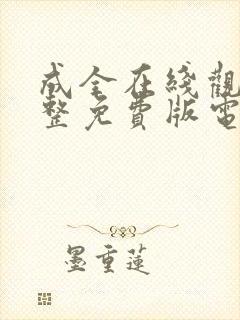 成全在綫觀
整免費版電
墨重蓮